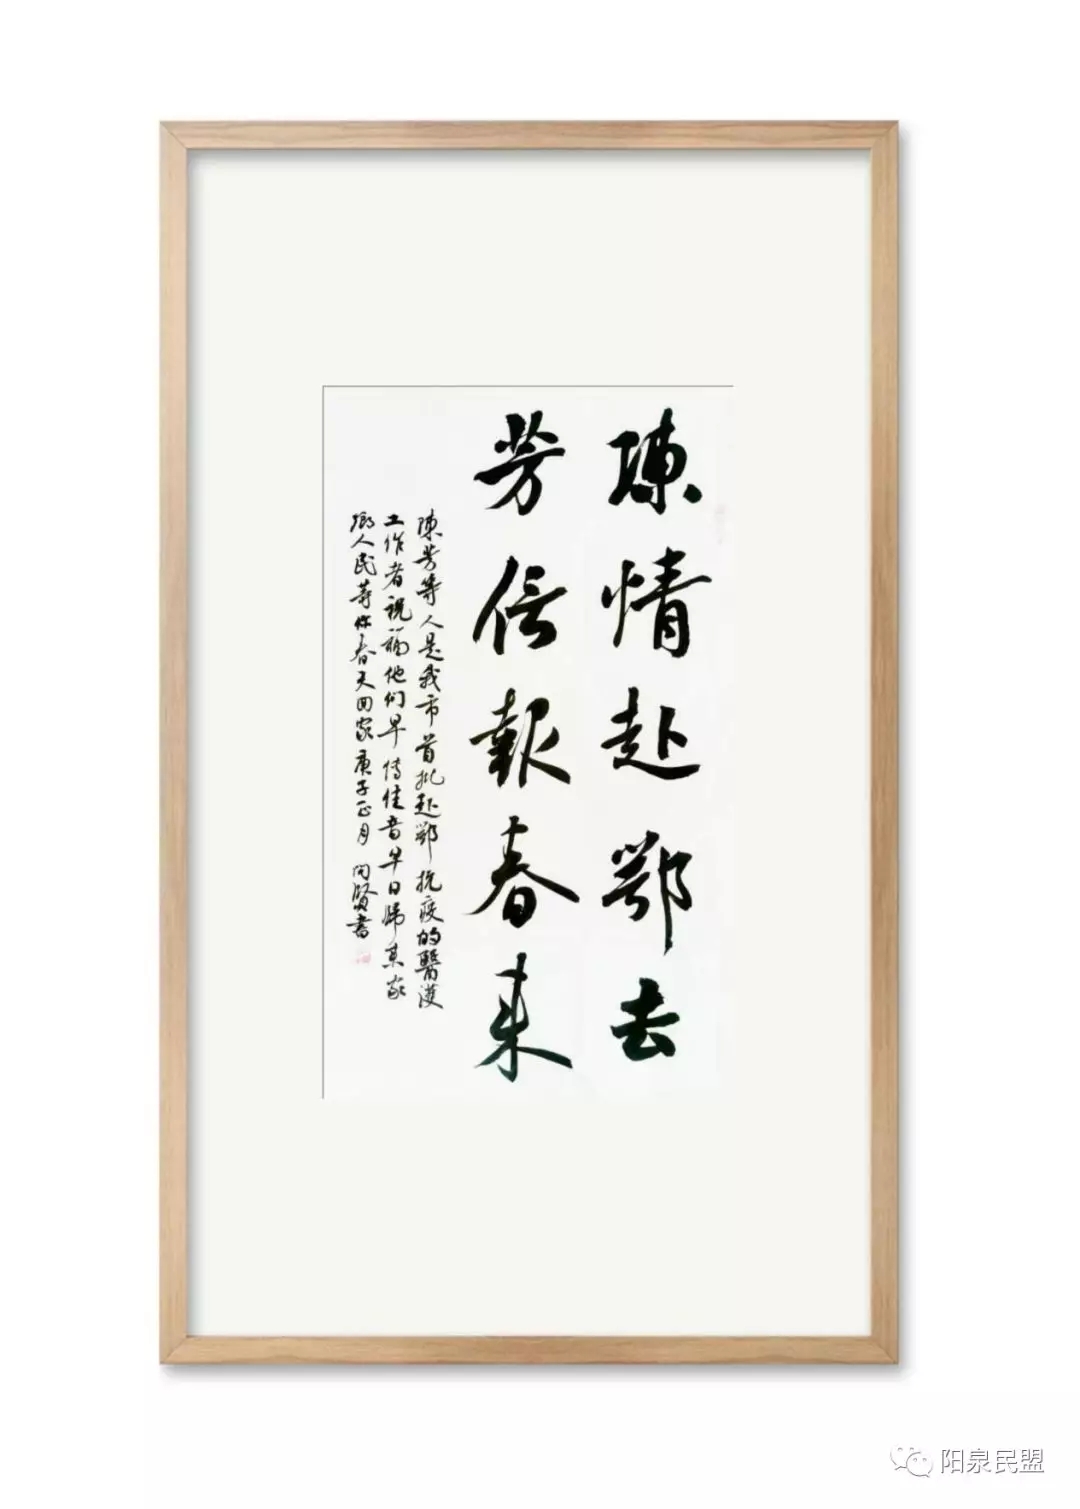 陳情赴鄂去
芳信報春来
陳芳等人是我市首批赴鄂抗疫的醫護
工作者祝福他们早传佳音早日归来家
鄉人民等你春天回家庚子正月 向賢書
阳泉民盟